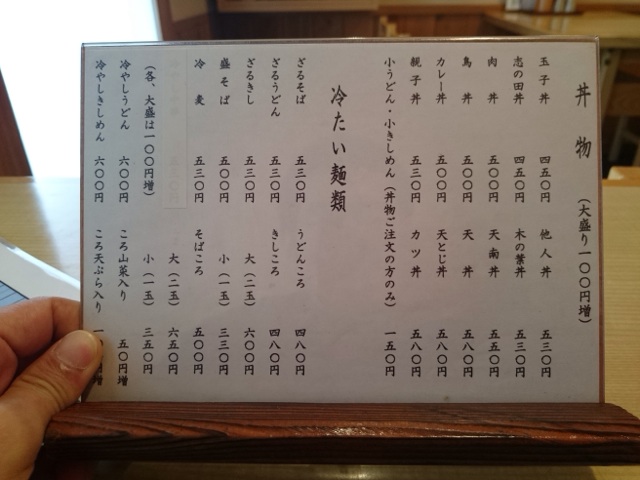 丼物 (大盛り一〇〇円増)
玉子丼 四五〇円 他人丼 五三〇円
志の田丼 四五〇円 木の葉丼 五三〇円
肉丼 五〇〇円 天南丼 五五〇円
鳥丼 五〇〇円 天丼 五八〇円
カレー丼 五〇〇円 天とじ丼 五八〇円
親子丼 五三〇円 カツ丼 五八〇円
小うどん・小きしめん(丼物ご注文の方のみ) 一五〇円
冷たい麺類
ざるそば 五三〇円 うどんころ 四八〇円
ざるうどん 五三〇円 きしころ 四八〇円
ざるきし 五三〇円 大(二玉) 六〇〇円
盛そば 五〇〇円 小(一玉) 三三〇円
冷麦 五三〇円 そばころ 五〇〇円
大(二玉) 六五〇円
(各、大盛は一〇〇円増) 小(一玉) 三五〇円
冷やしうどん 六〇〇円 ころ山菜入り 五〇円増
冷やしきしめん 六〇〇円 ころ天ぷら入り 円増